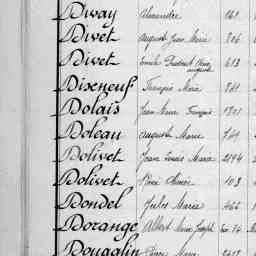 Diway Alexandre
Divet Auguste Jean Marie 706
Divet Emile Prudent Marie 613
Auguste
Dixneuf François Marie 741
Dolais Jean Marie François 1301
Doleau Auguste Marie 749
Dolivet Jean Louis Marie 2194
Dolivet René Olivier 103
Dondel Jules Marie 466
Dorange Albert Marie Joseph
Douaglin Pierre Marie